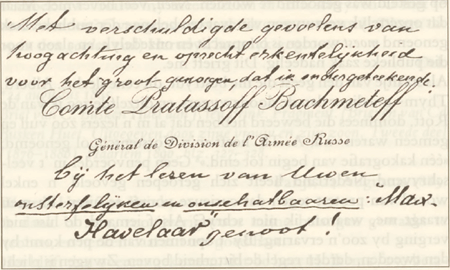 Met verschuldigde gevoelens van
hoogachting en oprecht erkentelijkheid
voor het groot genoegen, dat ik ondergeteekende:
Comte Pratassoff Bachmeteff
Général de Division de l'Armée Russe
bij het lezen van Uwen
onsterfelijken en onschatbaaren: "Max-
Havelaar" genoot!